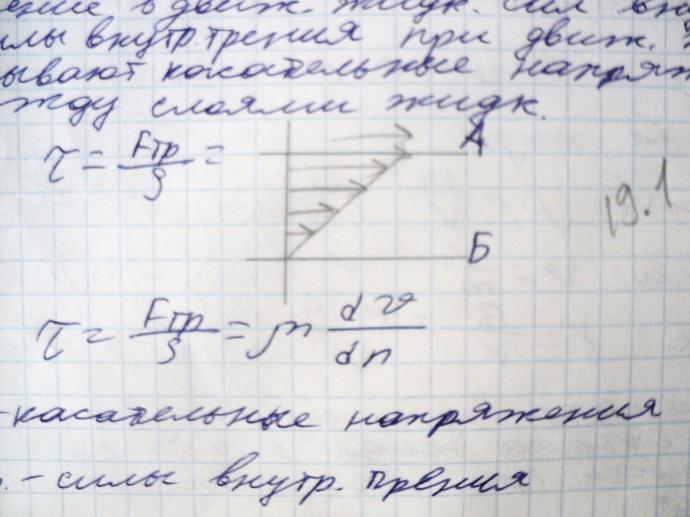 в движ. жидк. сил
внутр. трения при движ.
касательные
слоями жидк.
τ = Fтр/S =
А
19.1
Б
τ = Fтр/S = μ dv/dn
- касательные напряжения
- силы внутр. трения